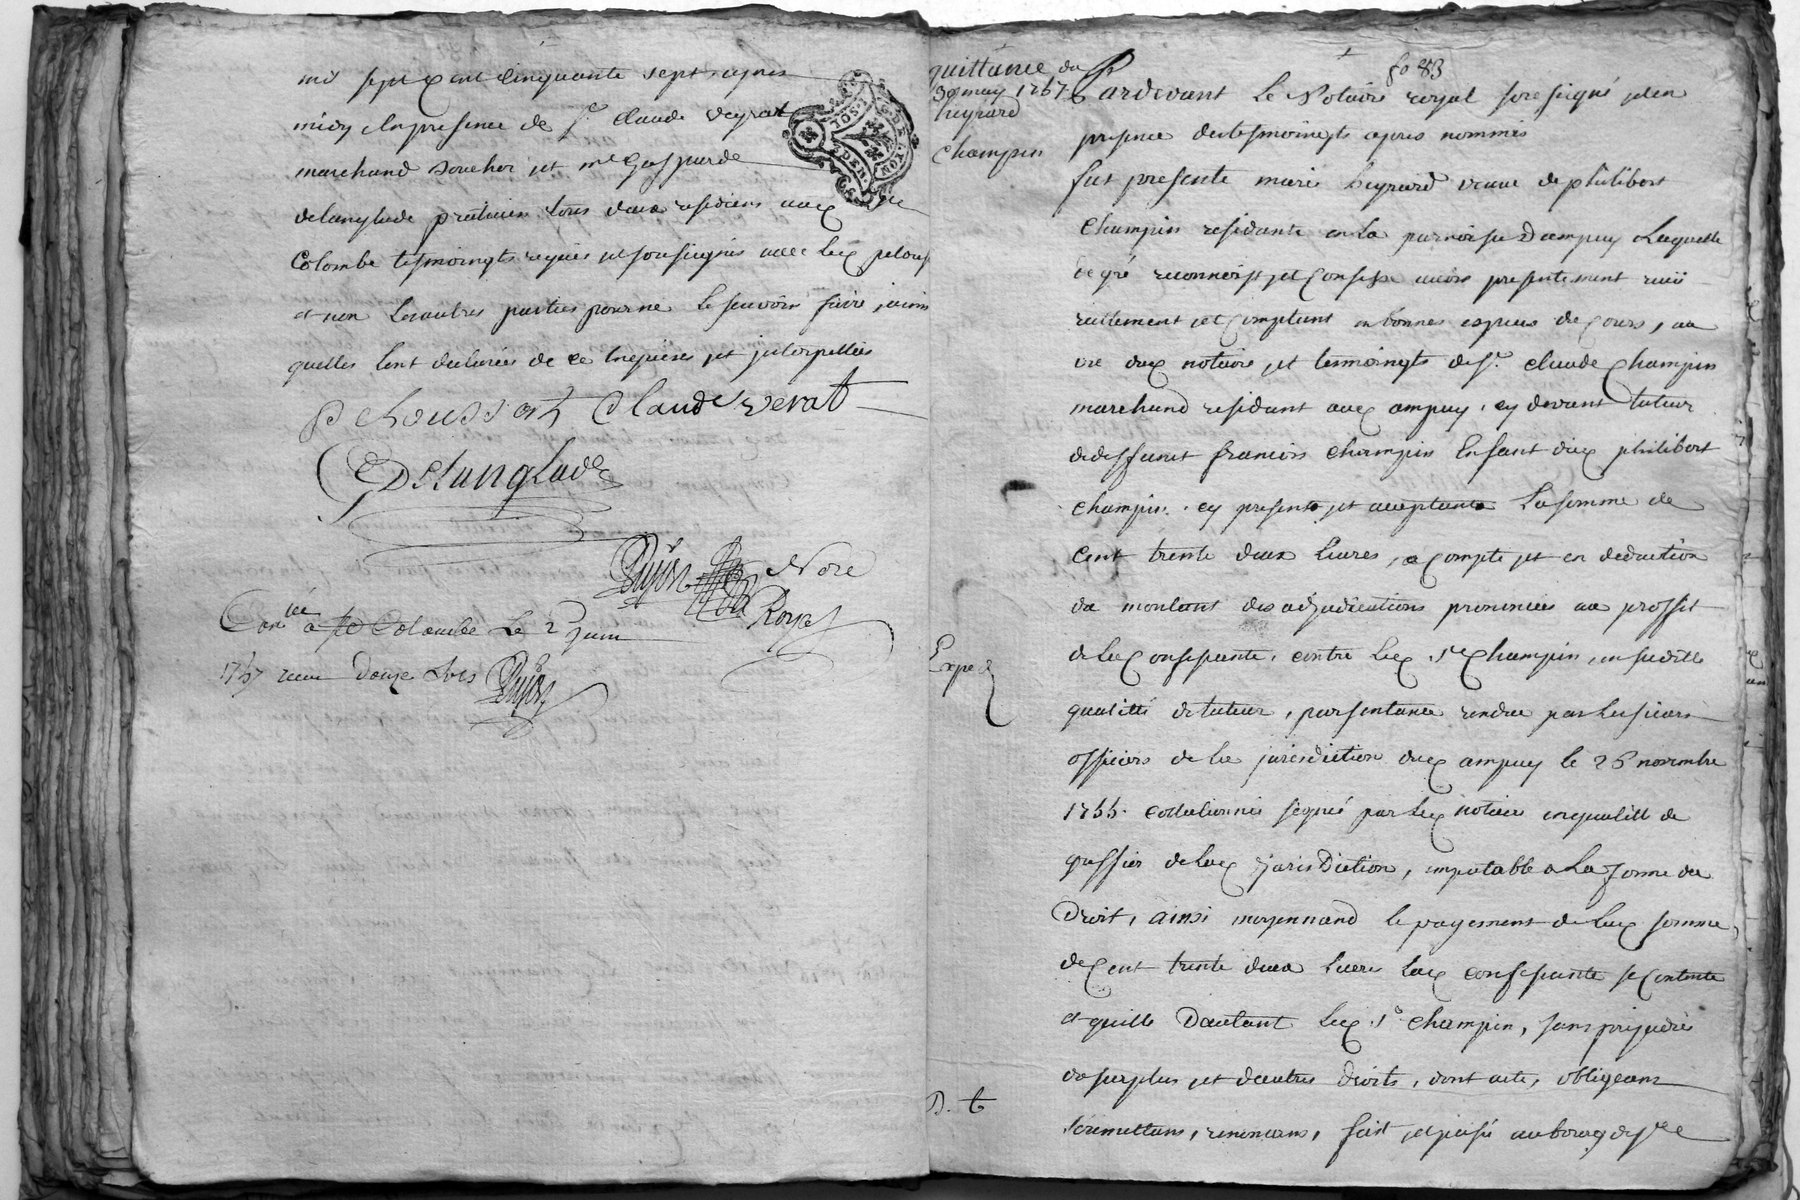 mil sept Cent Cinquante sept apres
midy En presence de Sr Claude Veyrat
marchand Boucher et me Gaspard
delanglade praticien tous deux residens aux Ste
Colombe tesmoingts requis et soussignés avec led pelous
et non les autres parties pour ne le scavoir faire, ainsi
quelles lont declarées de ce Enquises et jnterpellées
Pelousson Claude verat
Delanglade
Dujon Nore Royal
Conlée a Ste Colombe Le 2 Juin
1757 reçu Douze sols Dujon
quittance du
30 may 1757
heyrard
Champin
fo 83
Pardevant Le Notaire royal soussigné et en
presence des tesmoingts apres nommés
fut presente marie heyrard veuve de philibert
Champin residante en La parroisse Dampuy Laquelle
de gré reconnoist et Confesse avoir presentement reçu
reellement et Comptant en bonnes especes de Cours, au
vu dud notaire, et tesmoingts de Sr. Claude Champin
marchand residant aud ampuy, cy devant tuteur
de deffunt francois Champin Enfant dud philibert
Champin. cy present et acceptant La somme de
Cent trente deux Livres, a compte et en deduction
du montant des adjudications prononcées au proffit
Exped
de lad Confessante, contre Led Sr Champin, en sa ditte
qualitté de tuteur, par sentance rendue par Les sieurs
officiers de la jurisdiction dud ampuy le 26 novembre
1755. collationnée signée par Led notaire en qualitté de
greffier de lad jurisDiction, imputable a La forme du
Droit, ainsi moyennand le payement de lad somme,
de Cent trente deux Livres Lad confessante se Contente
et quitte Dautant Led Sr Champin, sans prejudice
du surplus et dautres Droits, dont acte, obligeant
D. t
soumettans, renoncans, fait et passé au bourg de Ste